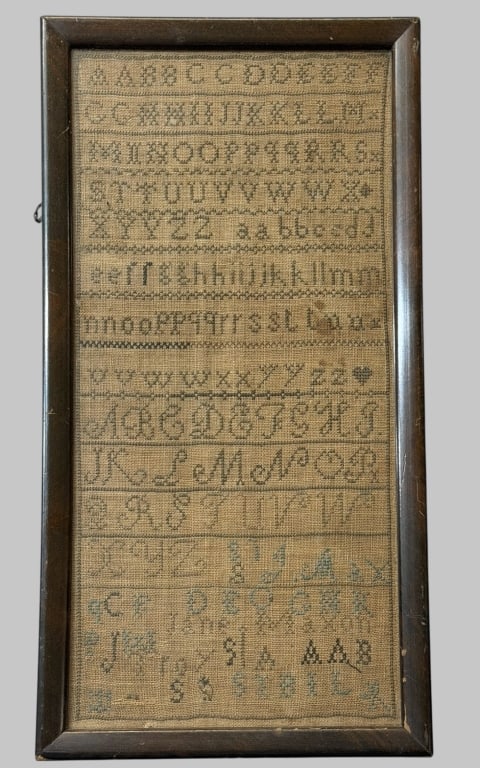 A A B B C C D D E E F F
G G H H I I J J K K L L M
M N N O O P P q q R R S
S T T U U V V W W X
X Y Y Z Z a a b b c c d d
e e f f g g h h i i j j k k l l m m
n n o o p p q q r r s s t t u u
v v w w x x y y z z
A B C D E F G H I
J K L M N O P
Q R S T U V W
X Y Z
C F D E
Jane
Troy S A A A B
S S S Y B I L